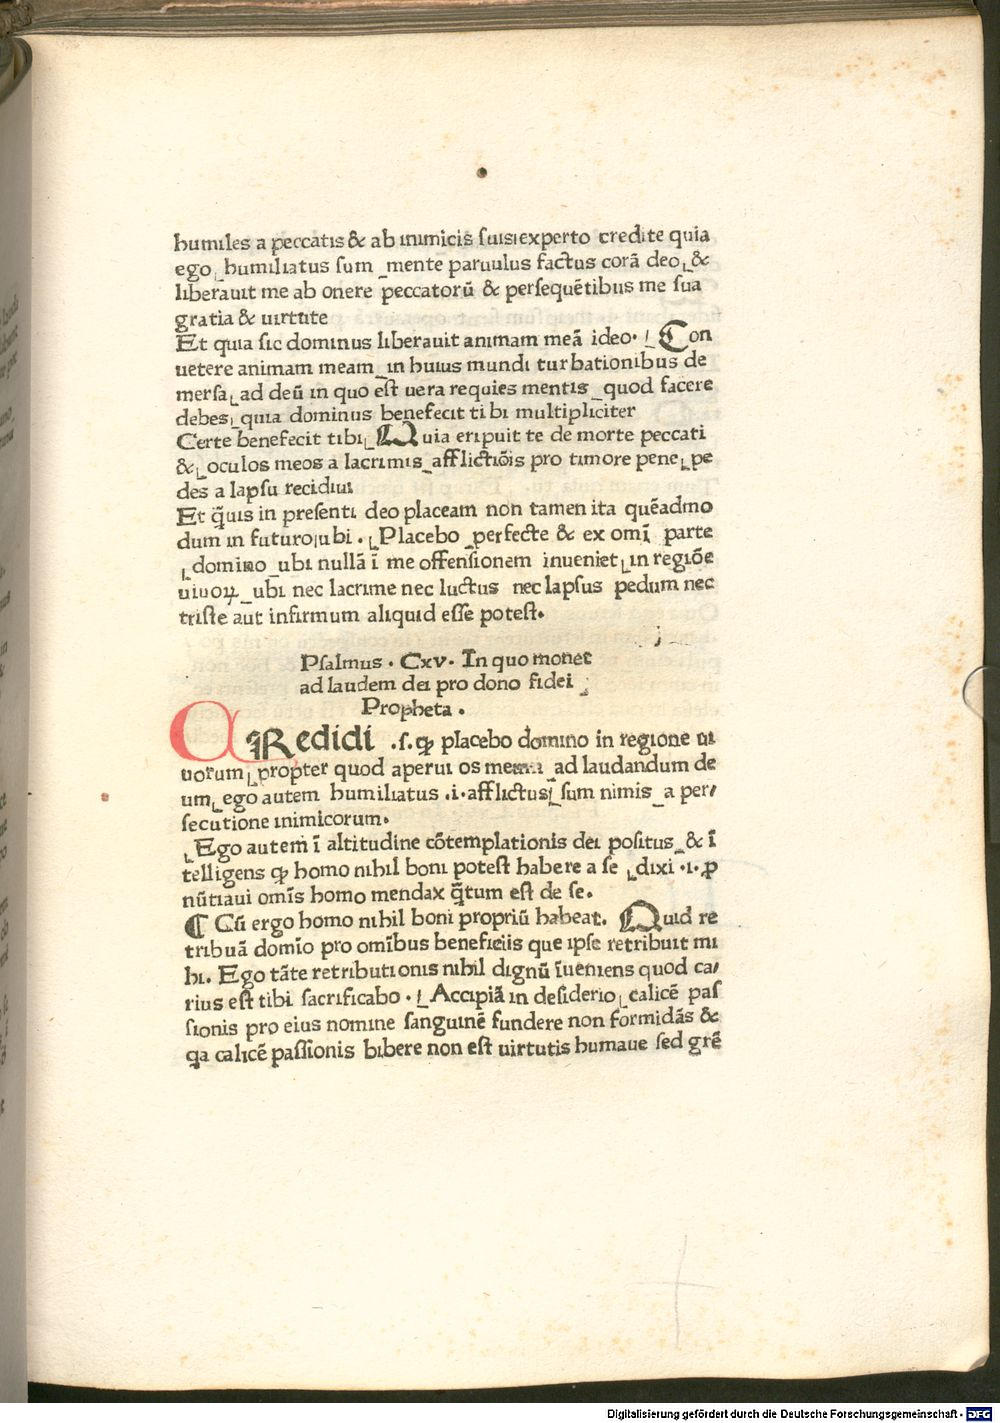 humiles a peccatis & ab inimicis suis experto credite quia
ego humiliatus sum mente paruulus factus corā deo & 
liberauit me ab onere peccatorū & persequētibus me sua
gratia & uirtute
Et quia sic dominus liberauit animam meā ideo. Con
uetere animam meam in huius mundi turbationibus de
mersa ad deū in quo est uera requies mentis quod facere
debes quia dominus benefecit tibi multipliciter
Certe benefecit tibi Quia eripuit te de morte peccati
& oculos meos a lacrimis afflictiōis pro timore pene pe
des a lapsu recidiui
Et q̄uis in presenti deo placeam non tamen ita quēadmo
dum in futuro ubi . Placebo perfecte & ex omī parte
domino ubi nullā ī me offensionem inueniet in regiōe
uiuoꝝ ubi nec lacrime nec luctus nec lapsus pedum nec
triste aut infirmum aliquid esse potest.
Psalmus . Cxv. In quo monet
ad laudem dei pro dono fidei
Propheta .
CRedidi .s. ꝙ placebo domino in regione ui
uorum propter quod aperui os meum ad laudandum de
um ego autem humiliatus .i. afflictus sum nimis a per/
secutione inimicorum.
Ego autem ī altitudine cōtemplationis dei positus & ī
telligens ꝙ homo nihil boni potest habere a se dixi .i. ꝓ
nūtiaui omīs homo mendax q̄tum est de se.
¶ Cū ergo homo nihil boni propriū habeat. Quid re
tribuā domīo pro omībus beneficiis que ipse retribuit mi
hi. Ego tāte retributionis nihil dignū īueniens quod ca/
rius est tibi sacrificabo . Accipiā in desiderio calicē pas
sionis pro eius nomine sanguinē fundere non formidās &
qa calicē passionis bibere non est uirtutis humaue sed grē
Digitalisierung gefördert durch die Deutsche Forschungsgemeinschaft - DFG